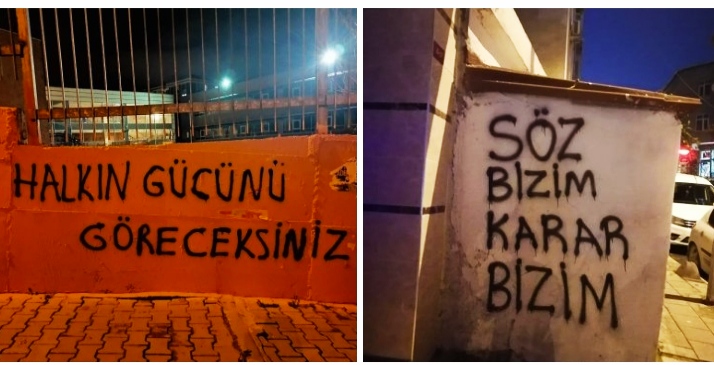 HALKIN GÜCÜNÜ
GÖRECEKSİNİZ
SÖZ
BİZİM
KARAR
BİZİM